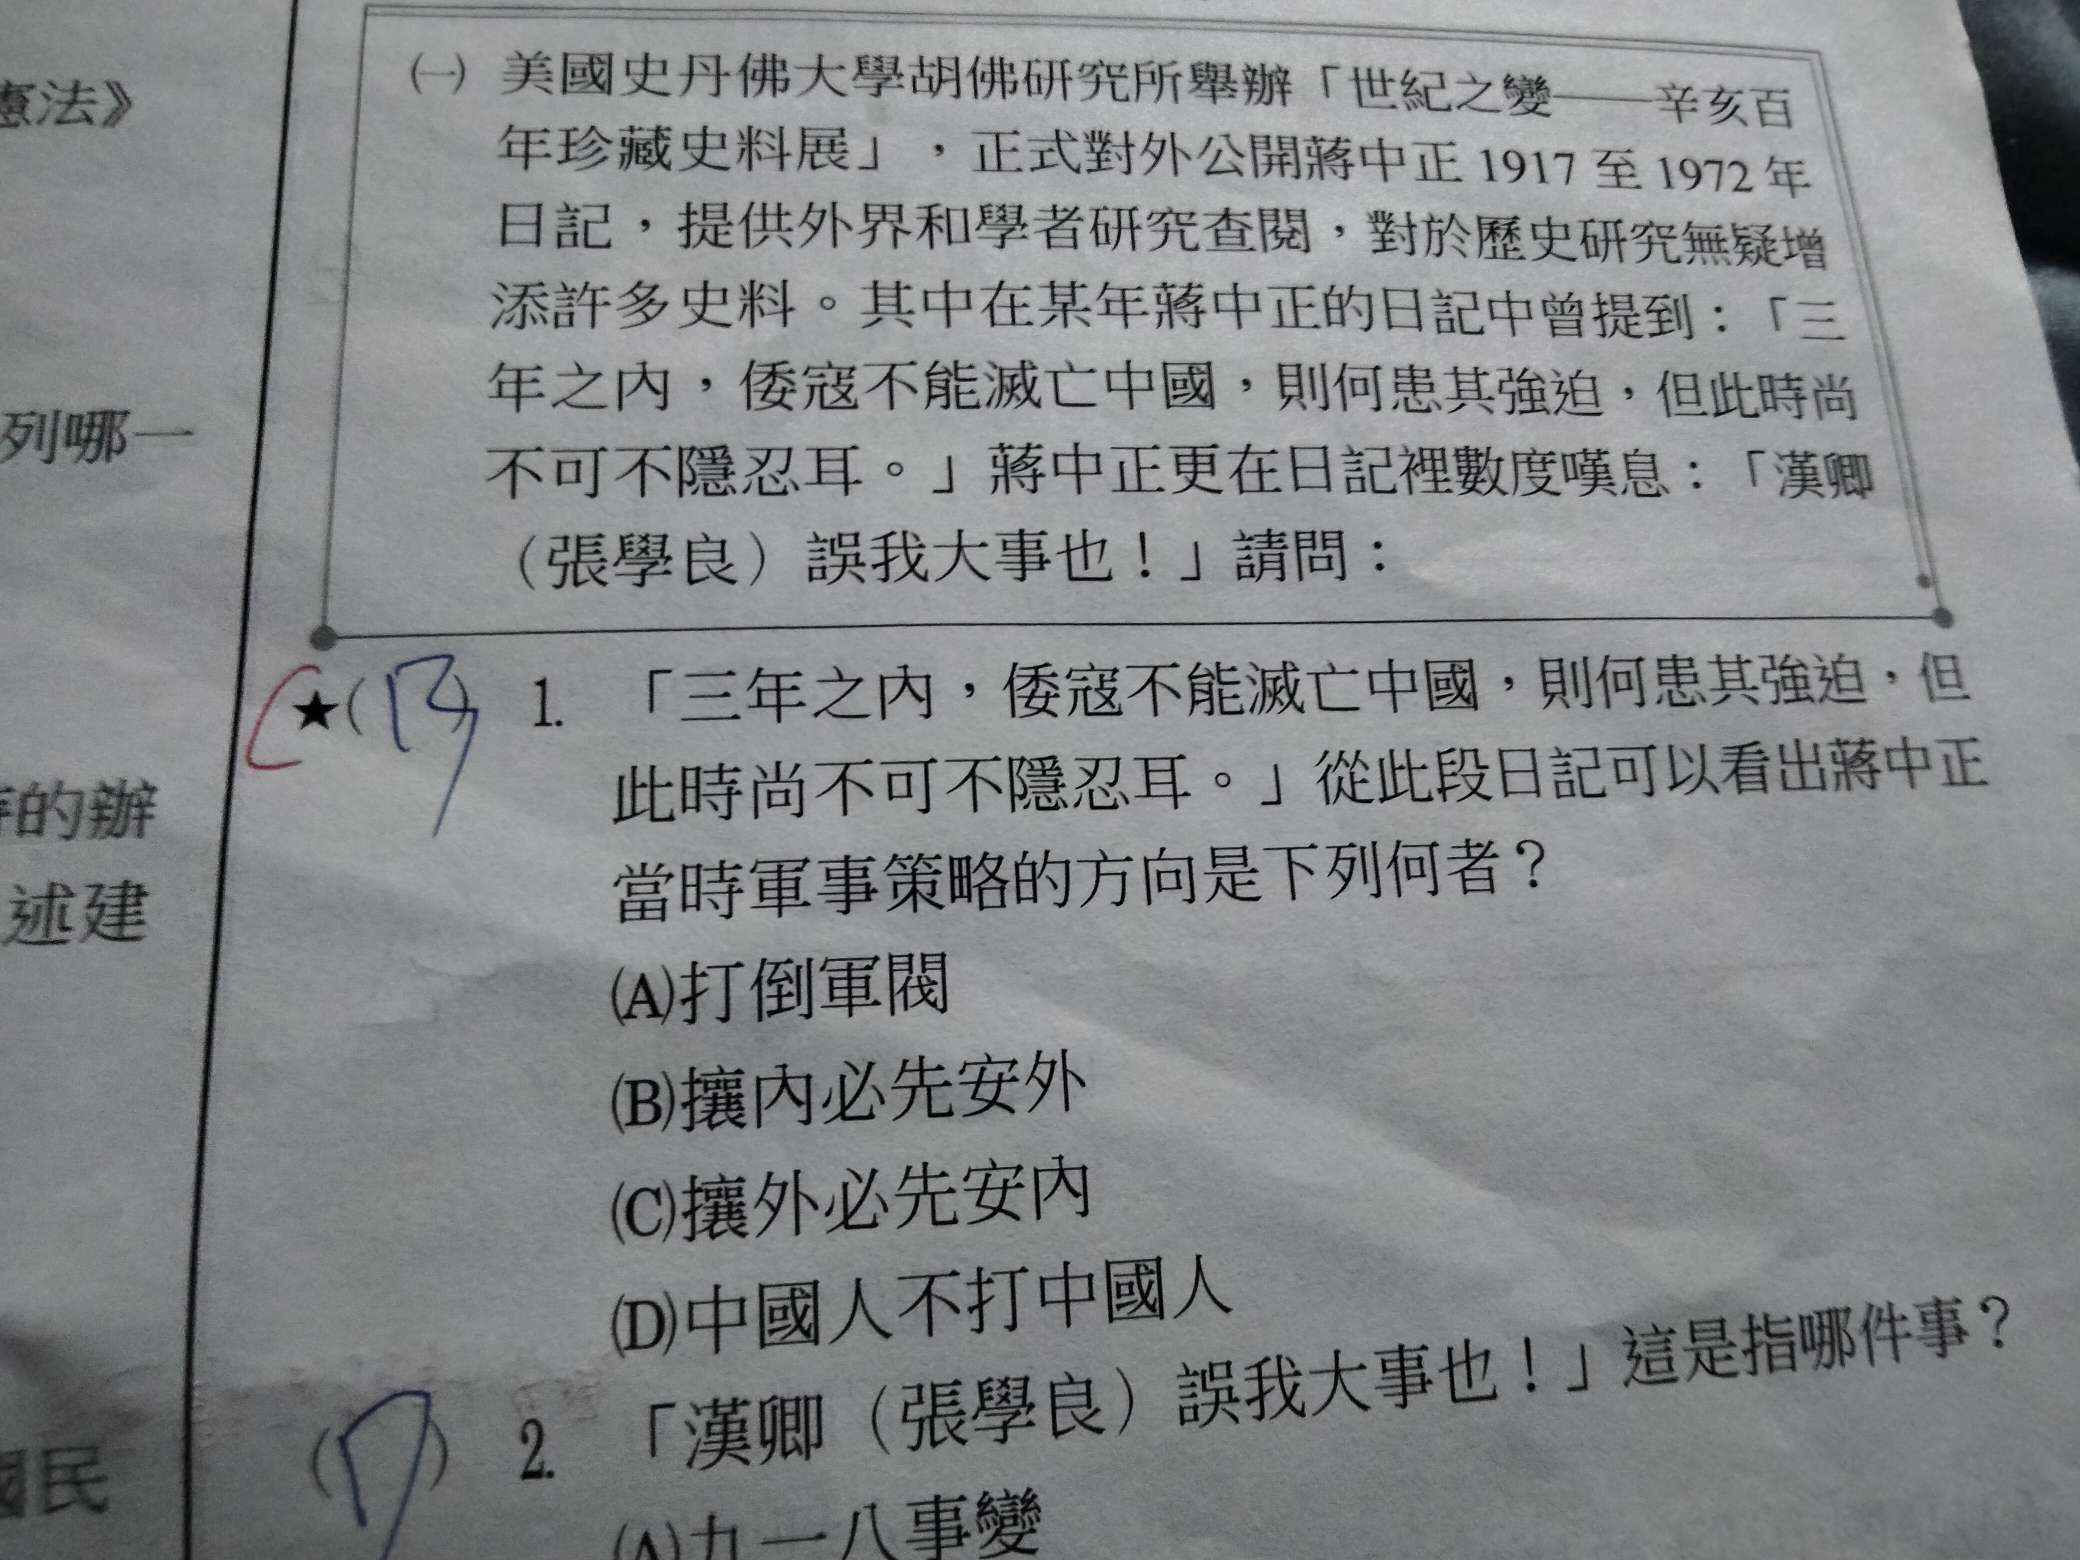 憲法》
列哪一
的辦
述建
國民
㈠ 美國史丹佛大學胡佛研究所舉辦「世紀之變——辛亥百
年珍藏史料展」，正式對外公開蔣中正 1917 至 1972 年
日記，提供外界和學者研究查閱，對於歷史研究無疑增
添許多史料。其中在某年蔣中正的日記中曾提到：「三
年之內，倭寇不能滅亡中國，則何患其強迫，但此時尚
不可不隱忍耳。」蔣中正更在日記裡數度嘆息：「漢卿
（張學良）誤我大事也！」請問：
★( ) 1. 「三年之內，倭寇不能滅亡中國，則何患其強迫，但
此時尚不可不隱忍耳。」從此段日記可以看出蔣中正
當時軍事策略的方向是下列何者？
(A)打倒軍閥
(B)攘內必先安外
(C)攘外必先安內
(D)中國人不打中國人
( ) 2. 「漢卿（張學良）誤我大事也！」這是指哪件事？
(A)九一八事變